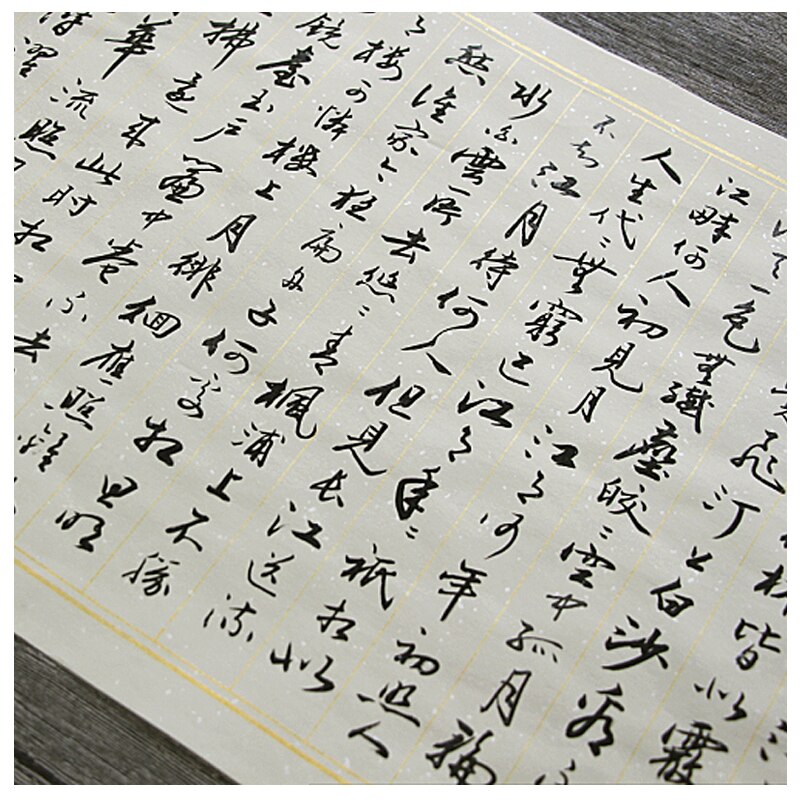 皆似霰
飛汀上白沙看不
天一色無纖塵皎〻空中孤月輪
江畔何人初見月江月何年初照人
人生代〻無窮已江月年〻祇相似
不知江月待何人但見長江送流
水白雲一片去悠〻青楓浦上不勝
愁誰家今夜扁舟子何處相思明
月樓可憐樓上月徘徊應照離
鏡臺玉戶簾中卷不去
拂還來此時相
華流照